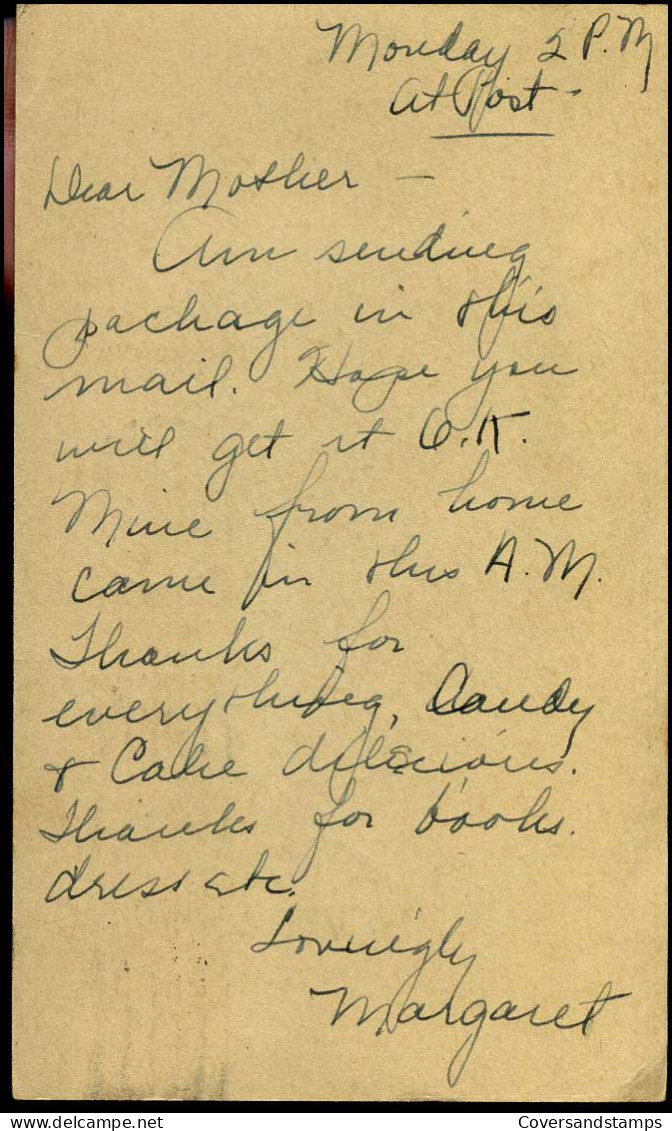 Monday 2 P.M
At Post -
Dear Mother -
Am sending
package in this
mail. Hope you
will get it O.K.
Mine from home
came in this A.M.
Thanks for
everything, Candy
& Cake delicious.
Thanks for books.
dress etc.
Lovingly
Margaret
delcampe.net
Coversandstamps